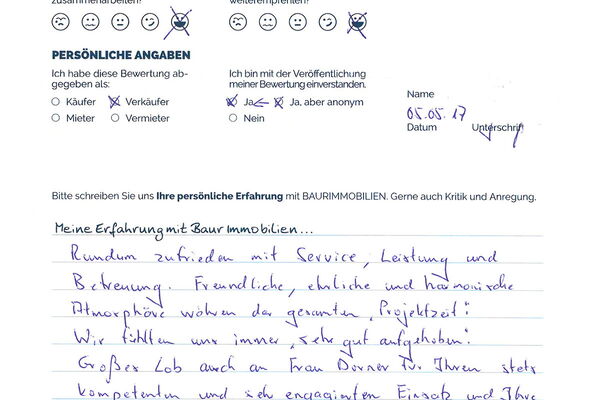 zusammenarbeiten?
weiterempfehlen?
PERSÖNLICHE ANGABEN
Ich habe diese Bewertung ab-
gegeben als:
Käufer Verkäufer
Mieter Vermieter
Ich bin mit der Veröffentlichung
meiner Bewertung einverstanden.
Ja Ja, aber anonym
Nein
Name
05.05.17
Datum Unterschrift
Bitte schreiben Sie uns Ihre persönliche Erfahrung mit BAURIMMOBILIEN. Gerne auch Kritik und Anregung.
Meine Erfahrung mit Baur Immobilien...
Rundum zufrieden mit Service, Leistung und
Betreuung. Freundliche, ehrliche und harmonische
Atmosphäre währen der gesamten „Projektzeit".
Wir fühlten uns immer „sehr gut aufgehoben".
Großes Lob auch an Frau Dorner für Ihren stets
kompetenten und sehr engagierten Einsatz und Ihre